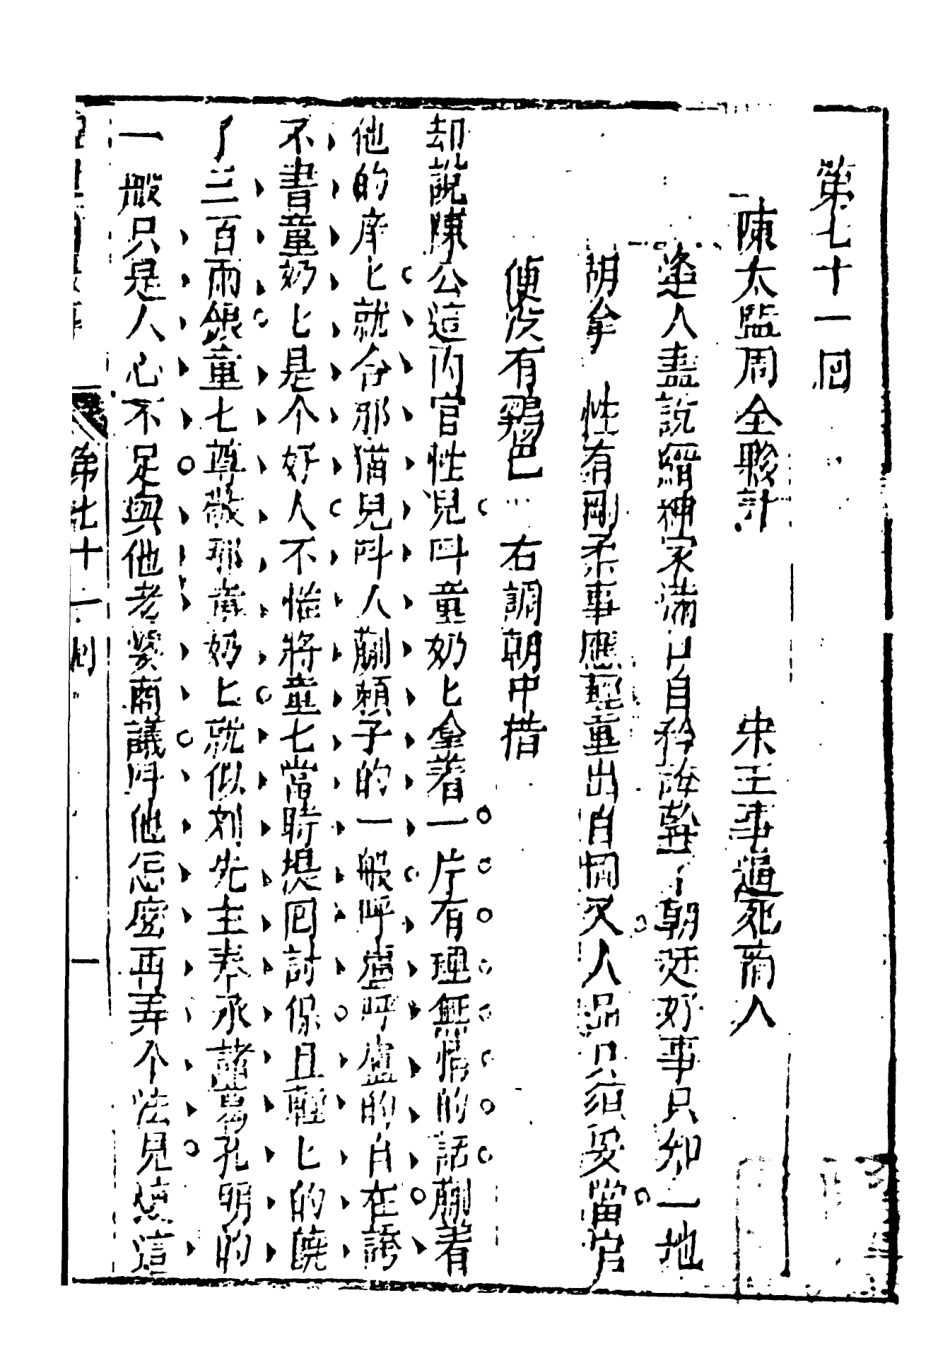 第七十一回
陳太監周全夥計 宋主事逼死商人
逢人盡說縉紳家滿口自矜誇幹了朝廷好事只知一地
胡牟 性有剛柔事應輕重出自惘又人品只須妥當官
便没有鷄巴 右調朝中措
却說陳公這内官性兒呌童奶匕拿着一片有理無情的話蒯着
他的痒匕就合那猫兒呌人蒯頼子的一般呼盧呼盧的自在誇
不書童奶匕是个好人不惟將童七當時提囘討保且輕匕的饒
了三百兩銀童七尊敬那童奶匕就似刘先主奉承諸葛孔明的
一般只是人心不足與他老婆商議呌他怎麽再弄个法兒這
第七十一
一